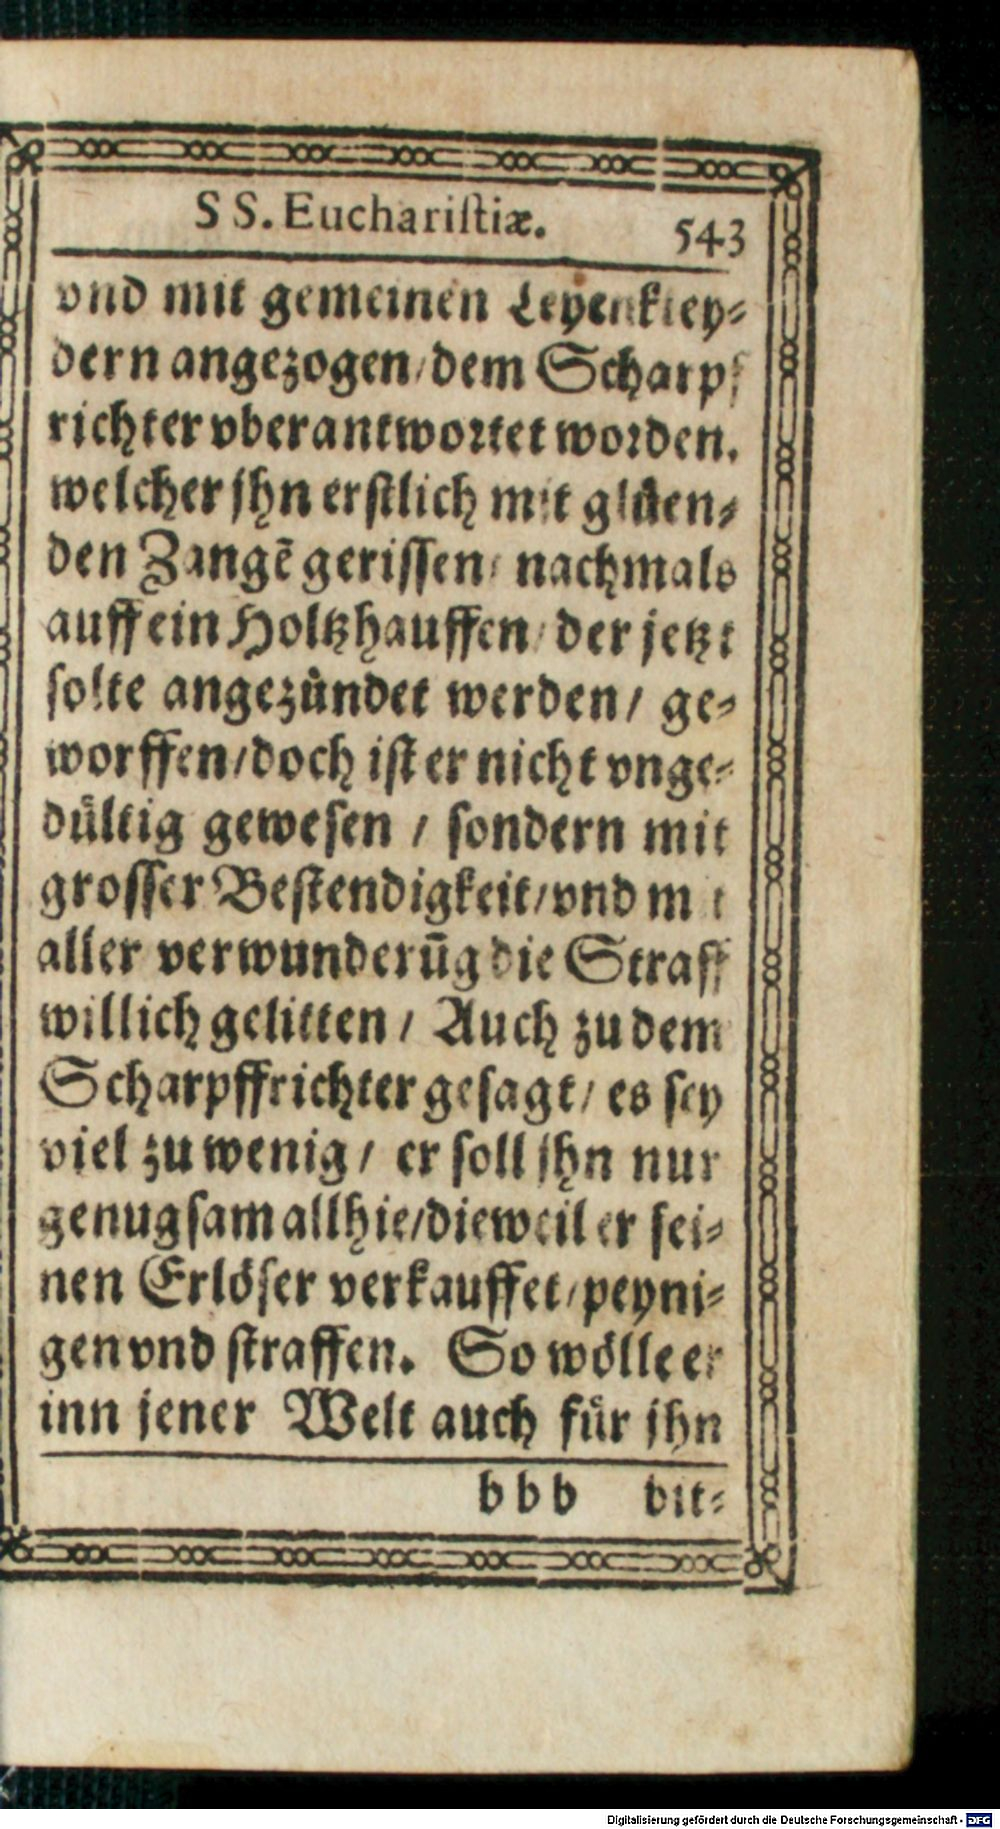 SS. Euchariſtiæ. 543
vnd mit gemeinen Leyenkley⸗
dern angezogen/ dem Scharpf
richter vberantwortet worden.
welcher jhn erſtlich mit glüen⸗
den Zangē geriſſen/ nachmals
auff ein Holtzhauffen/ der jetzt
ſolte angezündet werden/ ge⸗
worffen/ doch iſt er nicht vnge⸗
dültig geweſen / ſondern mit
groſſer Beſtendigkeit/ vnd mit
aller verwunderūg die Straff
willich gelitten / Auch zu dem
Scharpffrichter geſagt/ es ſey
viel zu wenig / er ſoll jhn nur
genugſam allhie/ dieweil er ſei⸗
nen Erlöſer verkauffet/ peyni⸗
gen vnd ſtraffen. So wölle er
inn jener Welt auch für jhn
bbb bit⸗
Digitalisierung gefördert durch die Deutsche Forschungsgemeinschaft - DFG